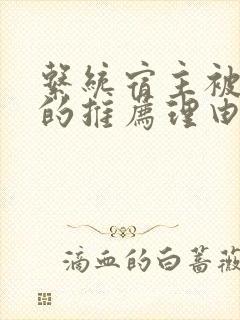 繫統宿主被
的推薦理由
滴血的白薔薇